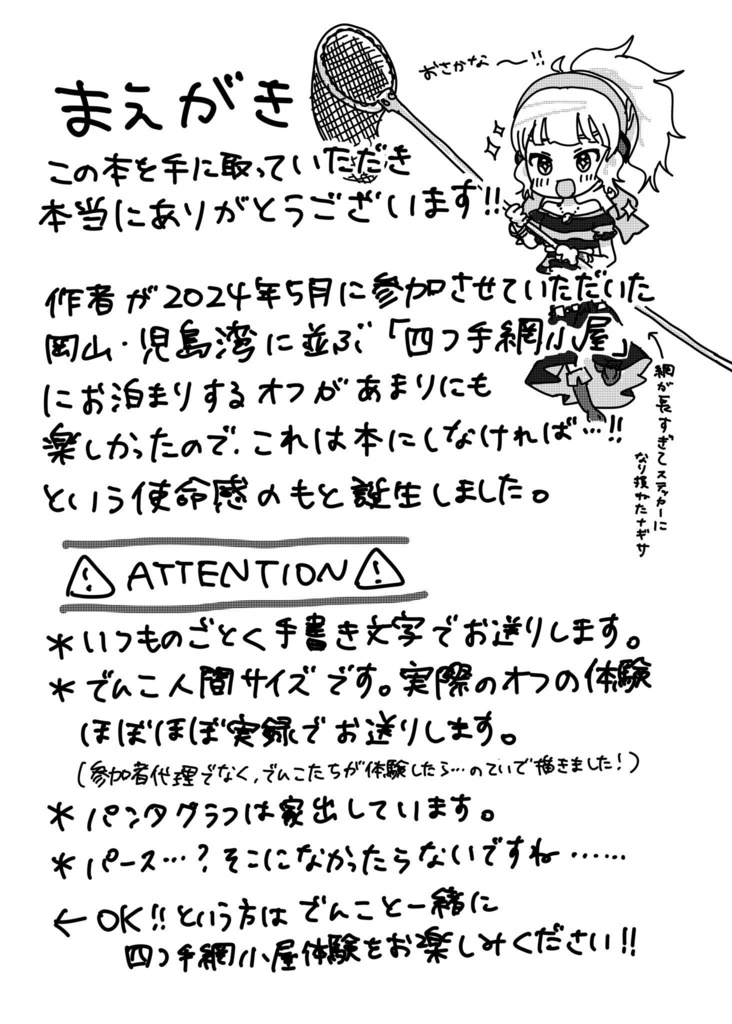 まえがき
おさかな〜!!
この本を手に取っていただき
本当にありがとうございます!!
作者が2024年5月に参加させていただいた
岡山・児島湾に並ぶ「四つ手網小屋」
にお泊まりするオフがあまりにも
楽しかったので、これは本にしなければ…!!
という使命感のもと誕生しました。
←網が長すぎてステッカーに
なり損ねたナギサ
⚠ ATTENTION ⚠
*いつものごとく手書き文字でお送りします。
*でんこ人間サイズです。実際のオフの体験
ほぼほぼ実録でお送りします。
(参加者代理でなく、でんこたちが体験したら…のていで描きました!)
*パンタグラフは家出しています。
*パース…?そこになかったらないですね……
←OK!!という方はでんこと一緒に
四つ手網小屋体験をお楽しみください!!